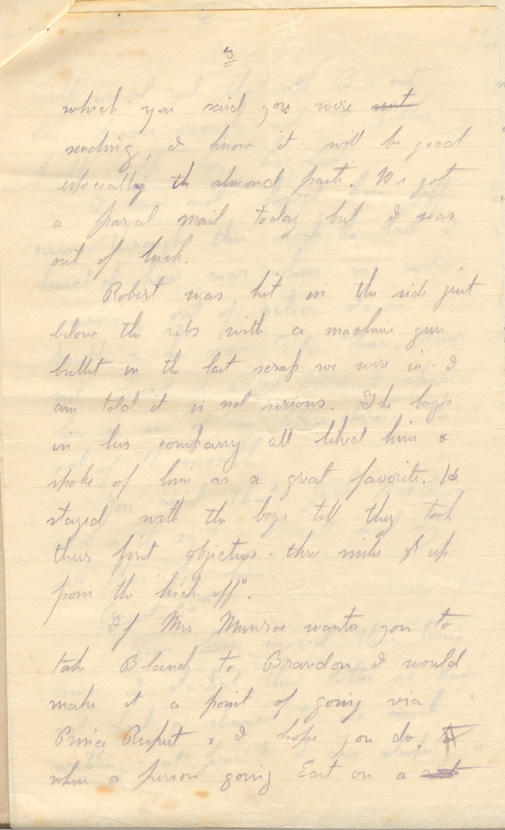 3
which you said you were sent
sending, I know it will be good
especially the almond paste. We got
a parcel mail today but I was
out of luck.
Robert was hit in the side just
below the ribs with a machine gun
bullet in the last scrap we were in - I
am told it is not serious. The boys
in his company all liked him &
spoke of him as a great favorite. He
stayed with the boys till they took
their first objective - three miles
from the "kick off".
If Mrs Munroe wants you to
take Blanch to Brandon I would
make it a point of going via
Prince Rupert & I hope you do.
when a person going East on a